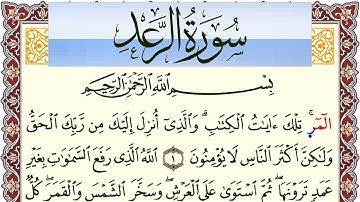 سُورَةُ الرَّعْدِ
بِسْمِ ٱللَّهِ ٱلرَّحْمَٰنِ ٱلرَّحِيمِ
الٓمٓرۚ تِلْكَ ءَايَٰتُ ٱلْكِتَٰبِۗ وَٱلَّذِىٓ أُنزِلَ إِلَيْكَ مِن رَّبِّكَ ٱلْحَقُّ
وَلَٰكِنَّ أَكْثَرَ ٱلنَّاسِ لَا يُؤْمِنُونَ ١ ٱللَّهُ ٱلَّذِى رَفَعَ ٱلسَّمَٰوَٰتِ بِغَيْرِ
عَمَدٍ تَرَوْنَهَاۖ ثُمَّ ٱسْتَوَىٰ عَلَى ٱلْعَرْشِۖ وَسَخَّرَ ٱلشَّمْسَ وَٱلْقَمَرَۖ كُلٌّ